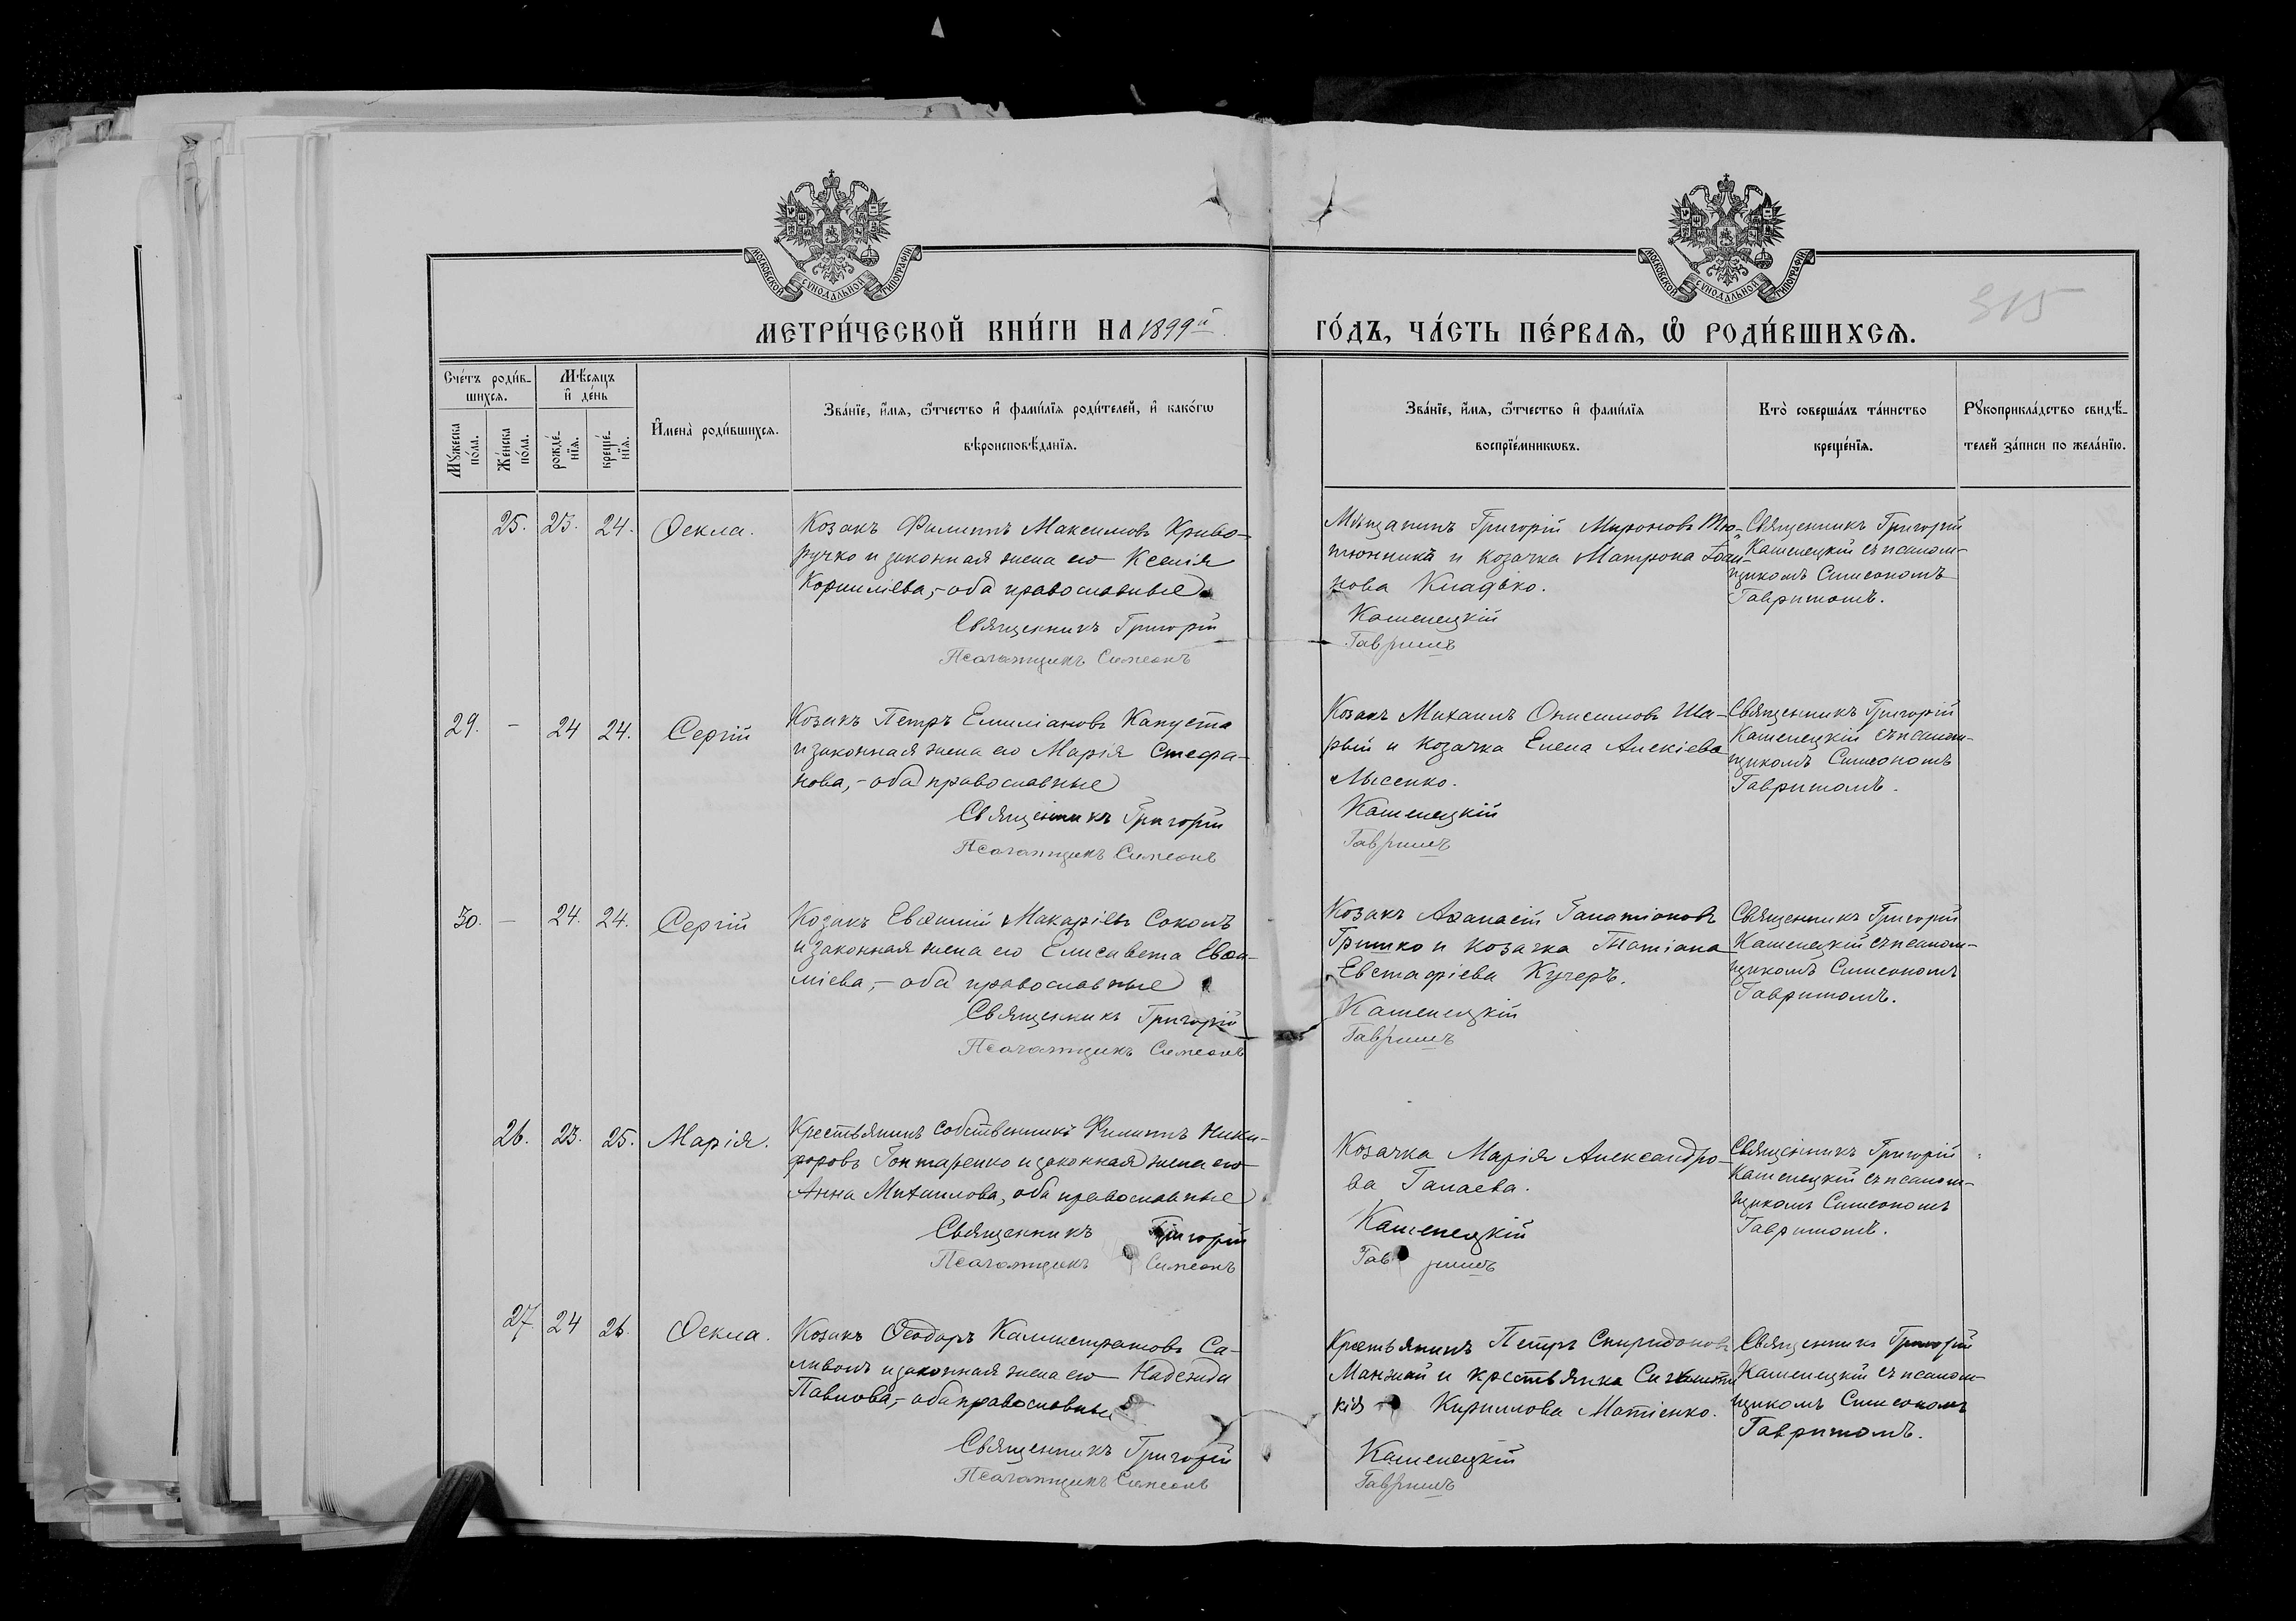 МОСКОВСКОЙ СѴНОДАЛЬНОЙ ТИПОГРАФІИ
МОСКОВСКОЙ СѴНОДАЛЬНОЙ ТИПОГРАФІИ
315
МЕТРИ́ЧЕСКОЙ КНИ́ГИ НА 1899й
ГО́ДЪ, ЧА́СТЬ ПЕ́РВАѦ, Ѡ҆ РОДИ́ВШИХСѦ.
Сче́тъ роди́в-
шихсѧ.
Мѣ́сѧцъ
и҆ де́нь
Мꙋ́жеска
по́ла.
Же́нска
по́ла.
рожде́-
нїѧ.
креще́-
нїѧ.
И҆мена̀ роди́вшихсѧ.
Зва́нїе, и҆́мѧ, ѻ҆́тчество и҆ фами́лїѧ роди́телей, и҆ како́гѡ
вѣроисповѣ́данїѧ.
Зва́нїе, и҆́мѧ, ѻ҆́тчество и҆ фами́лїѧ
воспрїе́мникѡвъ.
Кто̀ соверша́лъ та́инство
креще́нїѧ.
Рꙋкоприкла́дство свидѣ́-
телей за́писи по жела́нїю.
25. 23. 24. Ѳекла.
Козакъ Филиппъ Максимовъ Криво-
ручко и законная жена его Ксенія
Корниліева,- оба православные
Священникъ Григорій
Псаломщикъ Симеонъ
Мѣщанинъ Григорій Мироновъ Тю-
тюнникъ и козачка Матрона Іоан-
нова Кладько.
Кашенецкій
Гавришъ
Священникъ Григорій
Кашенецкій съ псалом-
щикомъ Симеономъ
Гавришомъ.
29. - 24 24. Сергій
Козакъ Петръ Емиліановъ Капуста
и законная жена его Марія Стефа-
нова,- оба православные
Священникъ Григорій
Псаломщикъ Симеонъ
Козакъ Михаилъ Онисимовъ Ша-
рый и козачка Елена Алексіева
Лысенко.
Кашенецкій
Гавришъ
Священникъ Григорій
Кашенецкій съ псалом-
щикомъ Симеономъ
Гавришомъ.
30. - 24. 24. Сергій
Козакъ Евѳимій Макаріевъ Соколъ
и законная жена его Елисавета Евѳи-
міева,- оба православные
Священникъ Григорій
Псаломщикъ Симеонъ
Козакъ Аѳанасій Галатіоновъ
Гришко и козачка Татіана
Евстафіева Кучеръ.
Кашенецкій
Гавришъ
Священникъ Григорій
Кашенецкій съ псалом-
щикомъ Симеономъ
Гавришомъ.
26. 23. 25. Марія.
Крестьянинъ собственникъ Филиппъ Ники-
форовъ Гонтаренко и законная жена его
Анна Михаилова, оба православные
Священникъ Григорій
Псаломщикъ Симеонъ
Козачка Марія Александро-
ва Галаева.
Кашенецкій
Гавришъ
Священникъ Григорій
Кашенецкій съ псалом-
щикомъ Симеономъ
Гавришомъ.
27 24 26. Ѳекла.
Козакъ Ѳеодоръ Каллистратовъ Са-
ливонъ и законная жена его Надежда
Павлова,- оба православные
Священникъ Григорій
Псаломщикъ Симеонъ
Крестьянинъ Петръ Спиридоновъ
Манжай и крестьянка
Кириллова Матіенко.
Кашенецкій
Гавришъ
Священникъ Григорій
Кашенецкій съ псалом-
щикомъ Симеономъ
Гавришомъ.